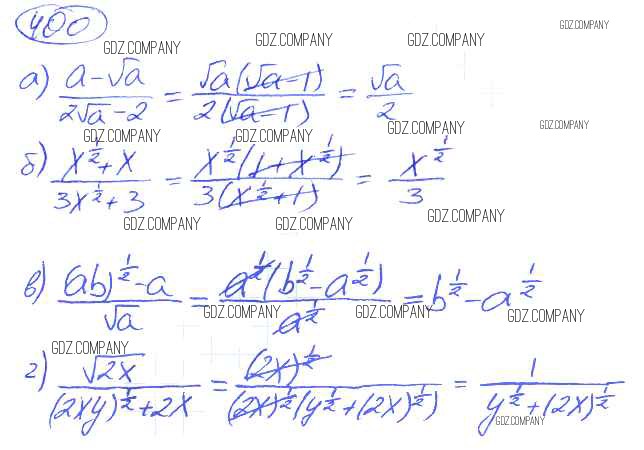 400
GDZ.COMPANY GDZ.COMPANY GDZ.COMPANY GDZ.COMPANY
а) (a-√a)/(2√a-2) = (√a(√a-1))/(2(√a-1)) = √a/2
GDZ.COMPANY GDZ.COMPANY GDZ.COMPANY GDZ.COMPANY
б) (x^(1/2)+x)/(3x^(1/2)+3) = (x^(1/2)(1+x^(1/2)))/(3(x^(1/2)+1)) = x^(1/2)/3
GDZ.COMPANY GDZ.COMPANY GDZ.COMPANY
в) ((ab)^(1/2)-a)/√a = (a^(1/2)(b^(1/2)-a^(1/2)))/a^(1/2) = b^(1/2)-a^(1/2)
GDZ.COMPANY GDZ.COMPANY GDZ.COMPANY
GDZ.COMPANY
г) √(2x)/((2xy)^(1/2)+2x) = (2x)^(1/2)/((2x)^(1/2)(y^(1/2)+(2x)^(1/2))) = 1/(y^(1/2)+(2x)^(1/2))
GDZ.COMPANY